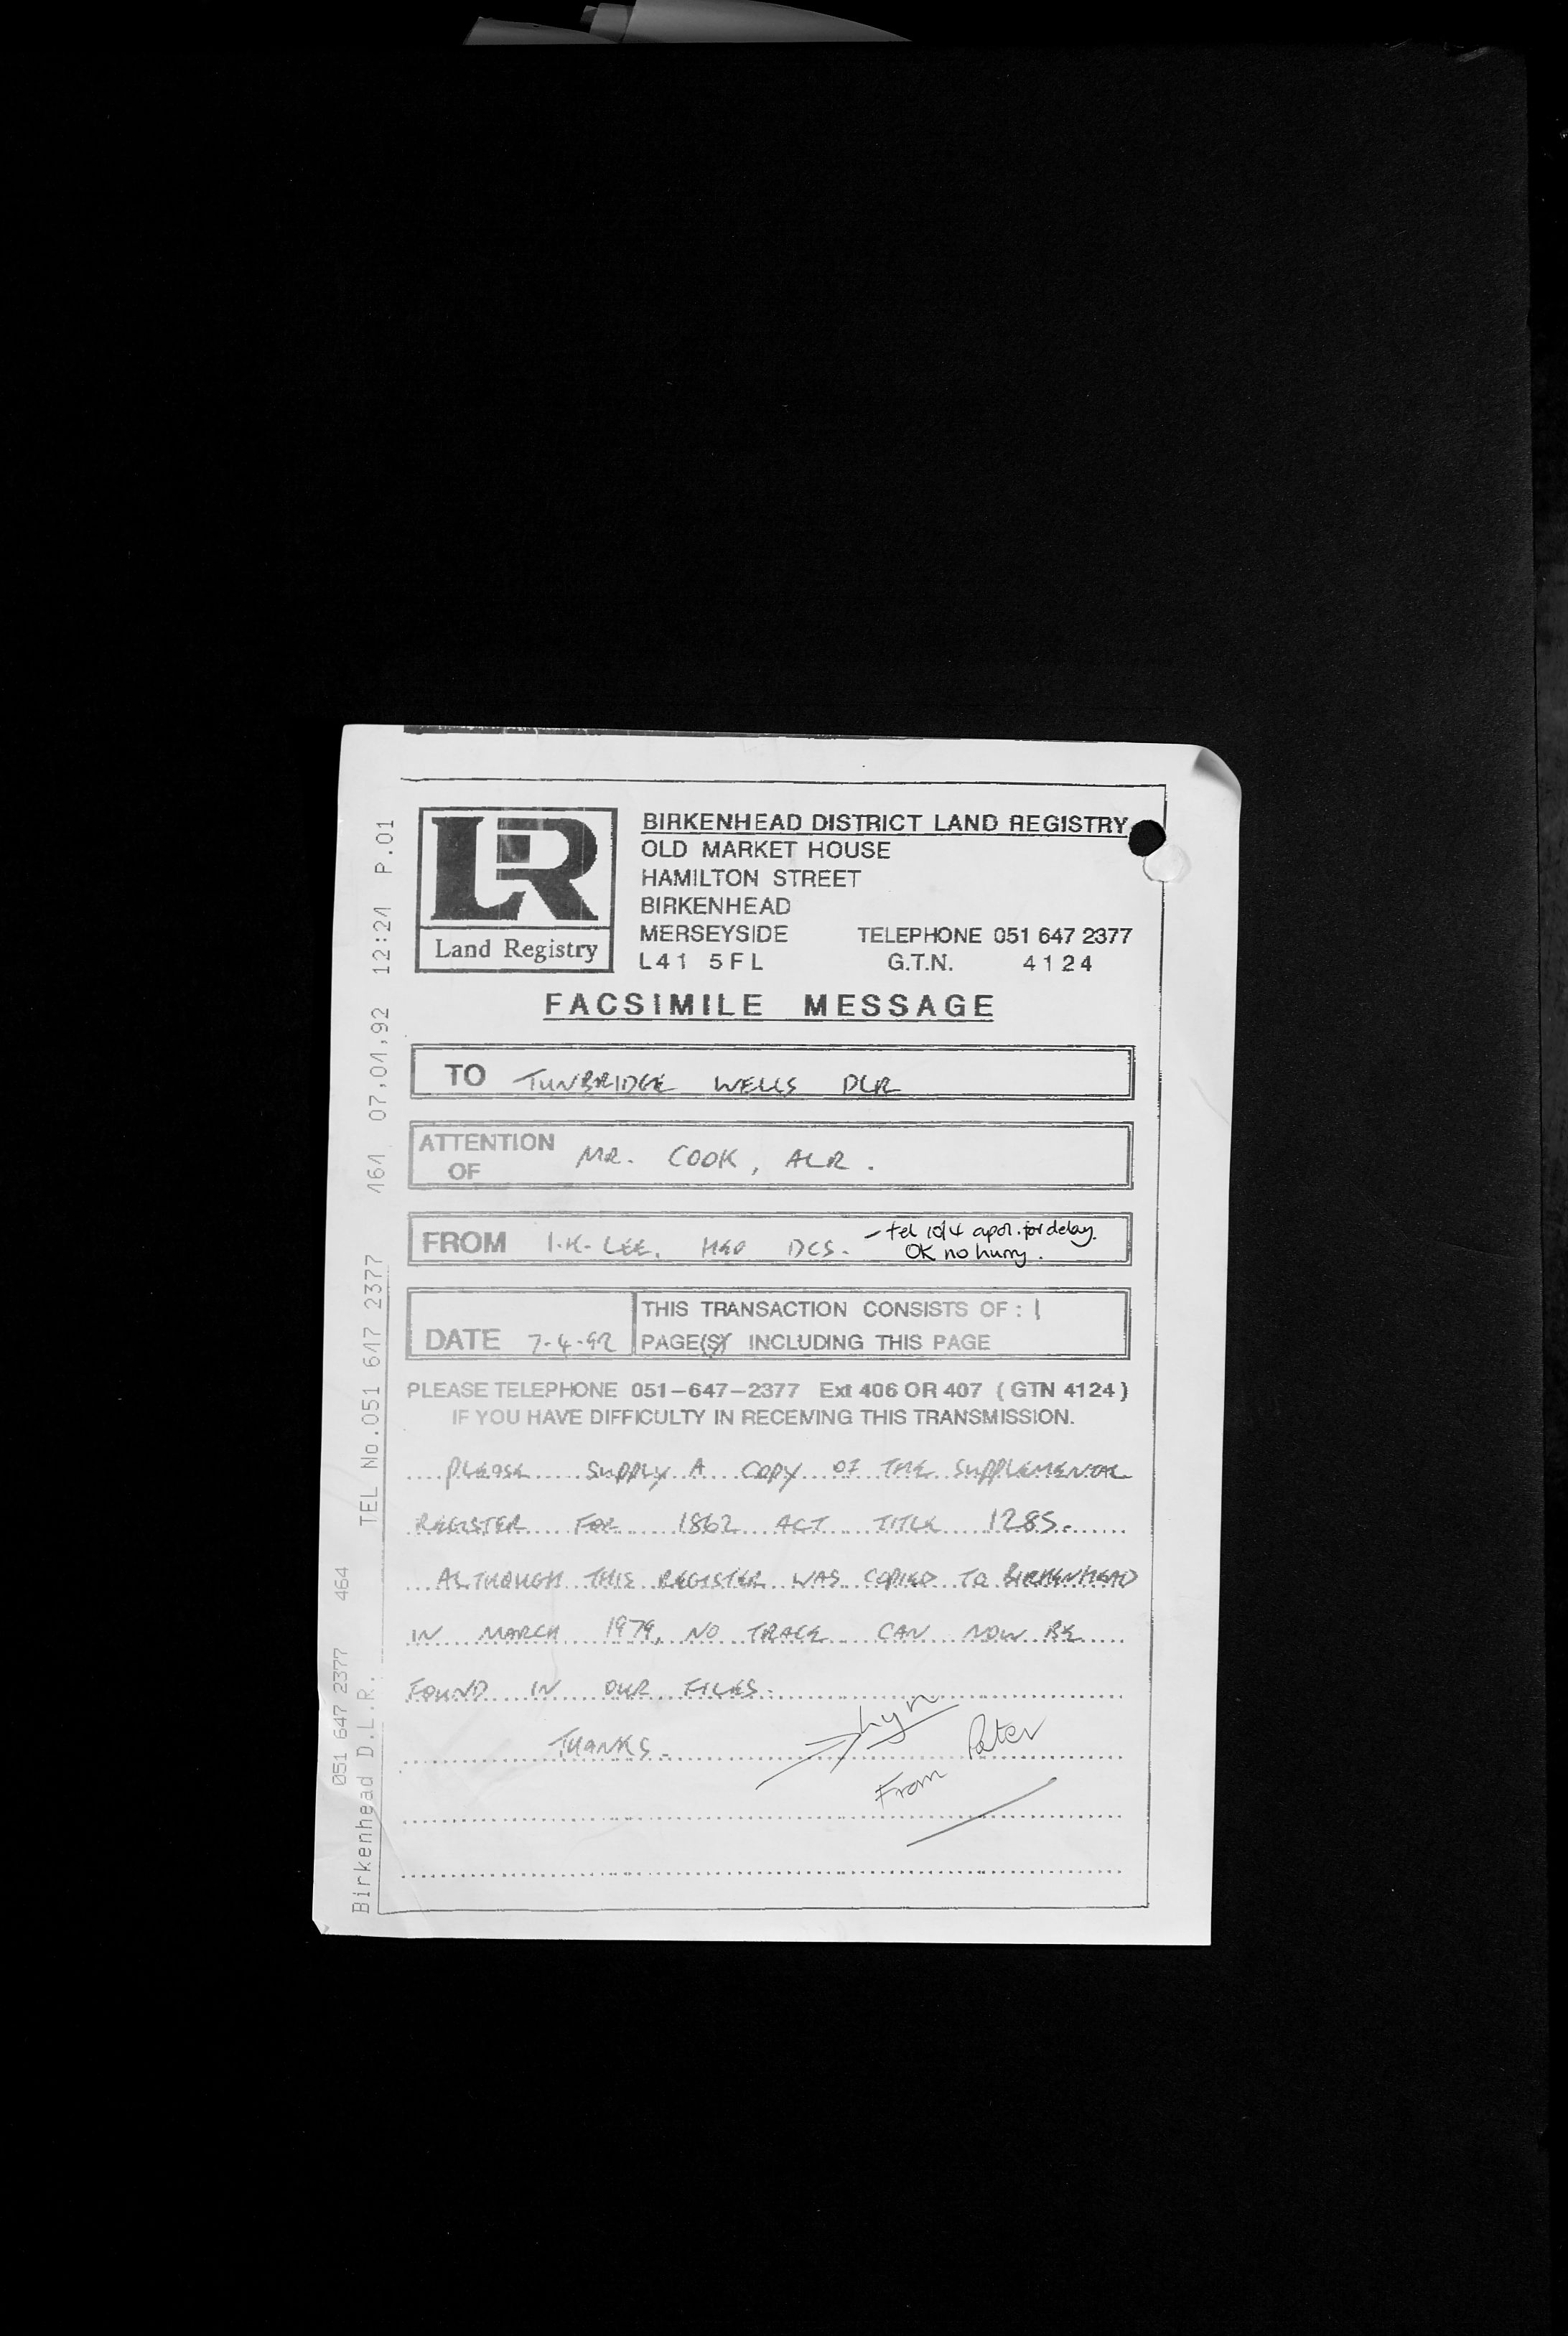 LR
Land Registry
BIRKENHEAD DISTRICT LAND REGISTRY
OLD MARKET HOUSE
HAMILTON STREET
BIRKENHEAD
MERSEYSIDE TELEPHONE 051 647 2377
L41 5FL G.T.N. 4124
FACSIMILE MESSAGE
TO TUNBRIDGE WELLS DLR
ATTENTION OF MR. COOK, ALR.
FROM I.K. LEE, HEO DCS. - tel 10/4 apol. for delay.
OK no hurry.
THIS TRANSACTION CONSISTS OF : 1
DATE 7-4-92 PAGE(S) INCLUDING THIS PAGE
PLEASE TELEPHONE 051-647-2377 Ext 406 OR 407 (GTN 4124)
IF YOU HAVE DIFFICULTY IN RECEIVING THIS TRANSMISSION.
PLEASE SUPPLY A COPY OF THE SUPPLEMENTAL
REGISTER FOR 1862 ACT TITLE 1285.
ALTHOUGH THIS REGISTER WAS COPIED TO BIRKENHEAD
IN MARCH 1979, NO TRACE CAN NOW BE
FOUND IN OUR FILES.
THANKS.
Lyn
From Peter
Birkenhead D.L.R. TEL No.051 647 2377 07,04,92 12:24 P.01
051 647 2377 464